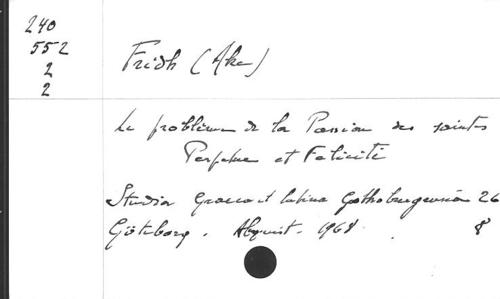 240
552
2
2
Fridh (Ake)
Le problème de la Passion des saintes
Perpetue et Felicité
Studia Graeca et latina Gothoburgensia 26
Göteborg. Almquist. 1968 8